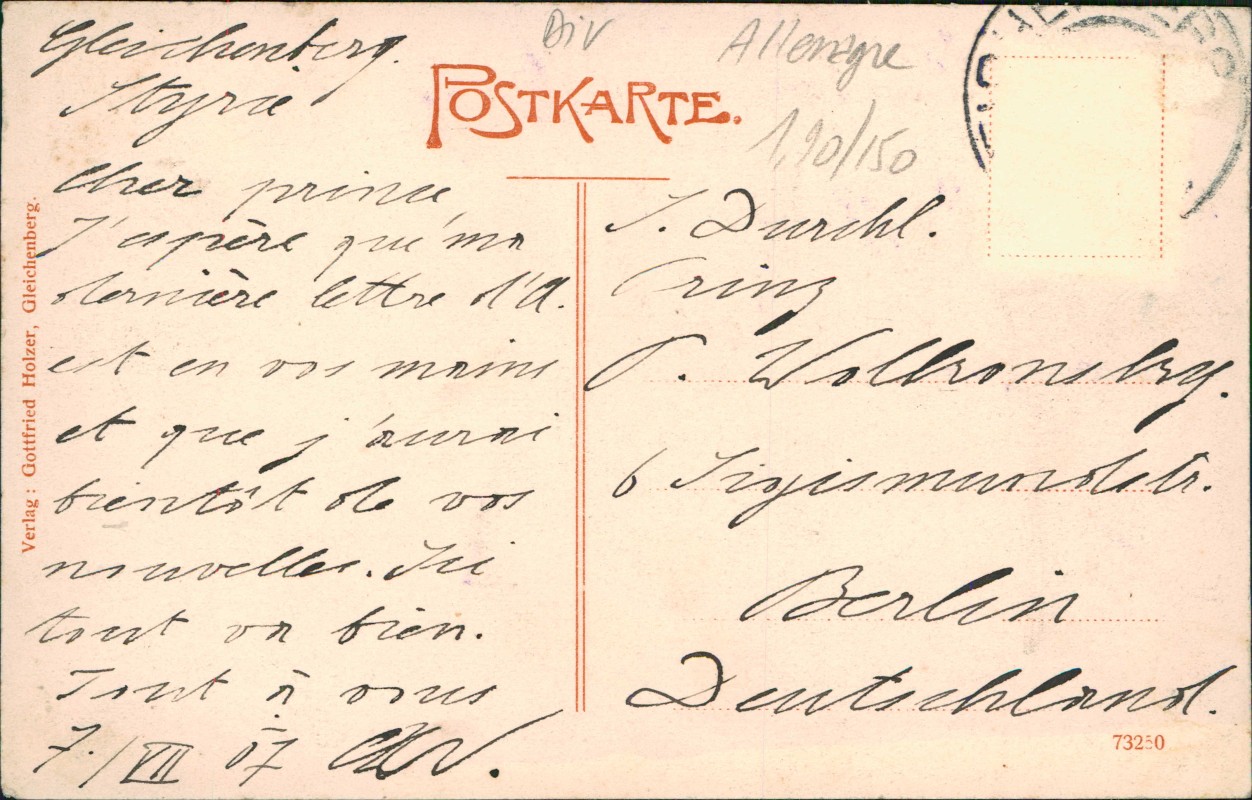 Gleichenberg.
Styrie
Cher prince
J'espère que ma
dernière lettre d'A.
est en vos mains
et que j'aurai
bientôt de vos
nouvelles. Ici
tout va bien.
Tout à vous
7./VII 07
Div
Allemagne
1,90/150
POSTKARTE.
S. Durchl.
Prinz
P. Wolkonsky.
6 Sigismundstr.
Berlin
Deutschland.
Verlag: Gottfried Holzer, Gleichenberg.